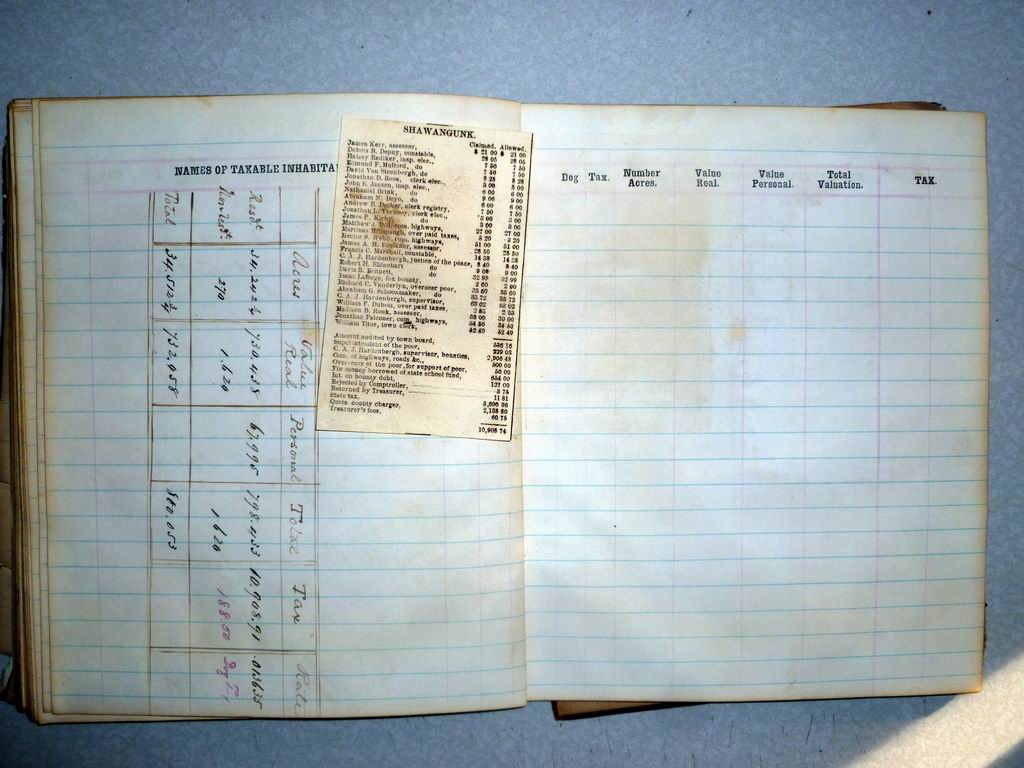 NAMES OF TAXABLE INHABITA
SHAWANGUNK.
Claimed. Allowed.
James Kerr, assessor, $ 21 00 $ 21 00
Dubois B. Depuy, constable, 28 05 28 05
Halsey Radiker, insp. elec., 7 50 7 50
Edmund F. Mulford, do 7 50 7 50
David Van Steenbergh, do 8 28 8 28
Jonathan D. Roos, clerk elec., 3 00 3 00
John E. Jansen, insp. elec., 6 00 6 00
Nathaniel Brink, do 9 06 9 00
Abraham N. Deyo, do 6 00 6 00
Andrew B. Decker, clerk registry, 7 50 7 50
Jonathan L. clerk elec., 3 00 3 00
James P. do 3 00 3 00
Matthew J. com. highways, 27 00 27 00
Martinus over paid taxes, 3 20 3 20
Hector S. Webb, com. highways, 51 00 51 00
James A. M. assessor, 28 50 28 50
Francis C. Marshall, constable, 14 38 14 38
C. A. J. Hardenbergh, justice of the peace, 8 40 8 40
Robert H. Rhinehart do 9 08 9 00
Davis B. Bennett, do 32 99 32 99
Isaac Laforge, fox bounty, 2 00 2 00
Richard C. Vanderlyn, overseer poor, 33 60 33 60
Abraham G. Schoonmaker, do 33 72 33 72
C. A. J. Hardenbergh, supervisor, 63 02 63 02
William F. Dubois, over paid taxes, 2 53 2 53
Madison B. Ronk, assessor, 30 00 30 00
Jonathan Falconer, com. highways, 34 50 34 50
William Titus, town clerk, 42 49 42 49
Amount audited by town board, 536 16
Superintendent of the poor, 229 03
C. A. J. Hardenbergh, supervisor, bounties, 2,906 48
Com. of highways, roads &c., 500 00
Overseers of the poor, for support of poor, 50 00
For money borrowed of state school fund, 654 00
Int. on bounty debt, 127 00
Rejected by Comptroller, 3 75
Returned by Treasurer, 11 81
State tax, 3,696 96
Quota county charges, 2,138 80
Treasurer's fees, 60 75
10,908 74
Acres Value Real Personal Total Tax Rate
Resdt 34.242 ¼ 730.438 67.995 798.433 10.908.91 .013635
Non Resdt. 270 1.620 1.620 188.50 Dog Tax
Total 34.512 ¼ 732.058 800.053
Dog Tax. Number Acres. Value Real. Value Personal. Total Valuation. TAX.